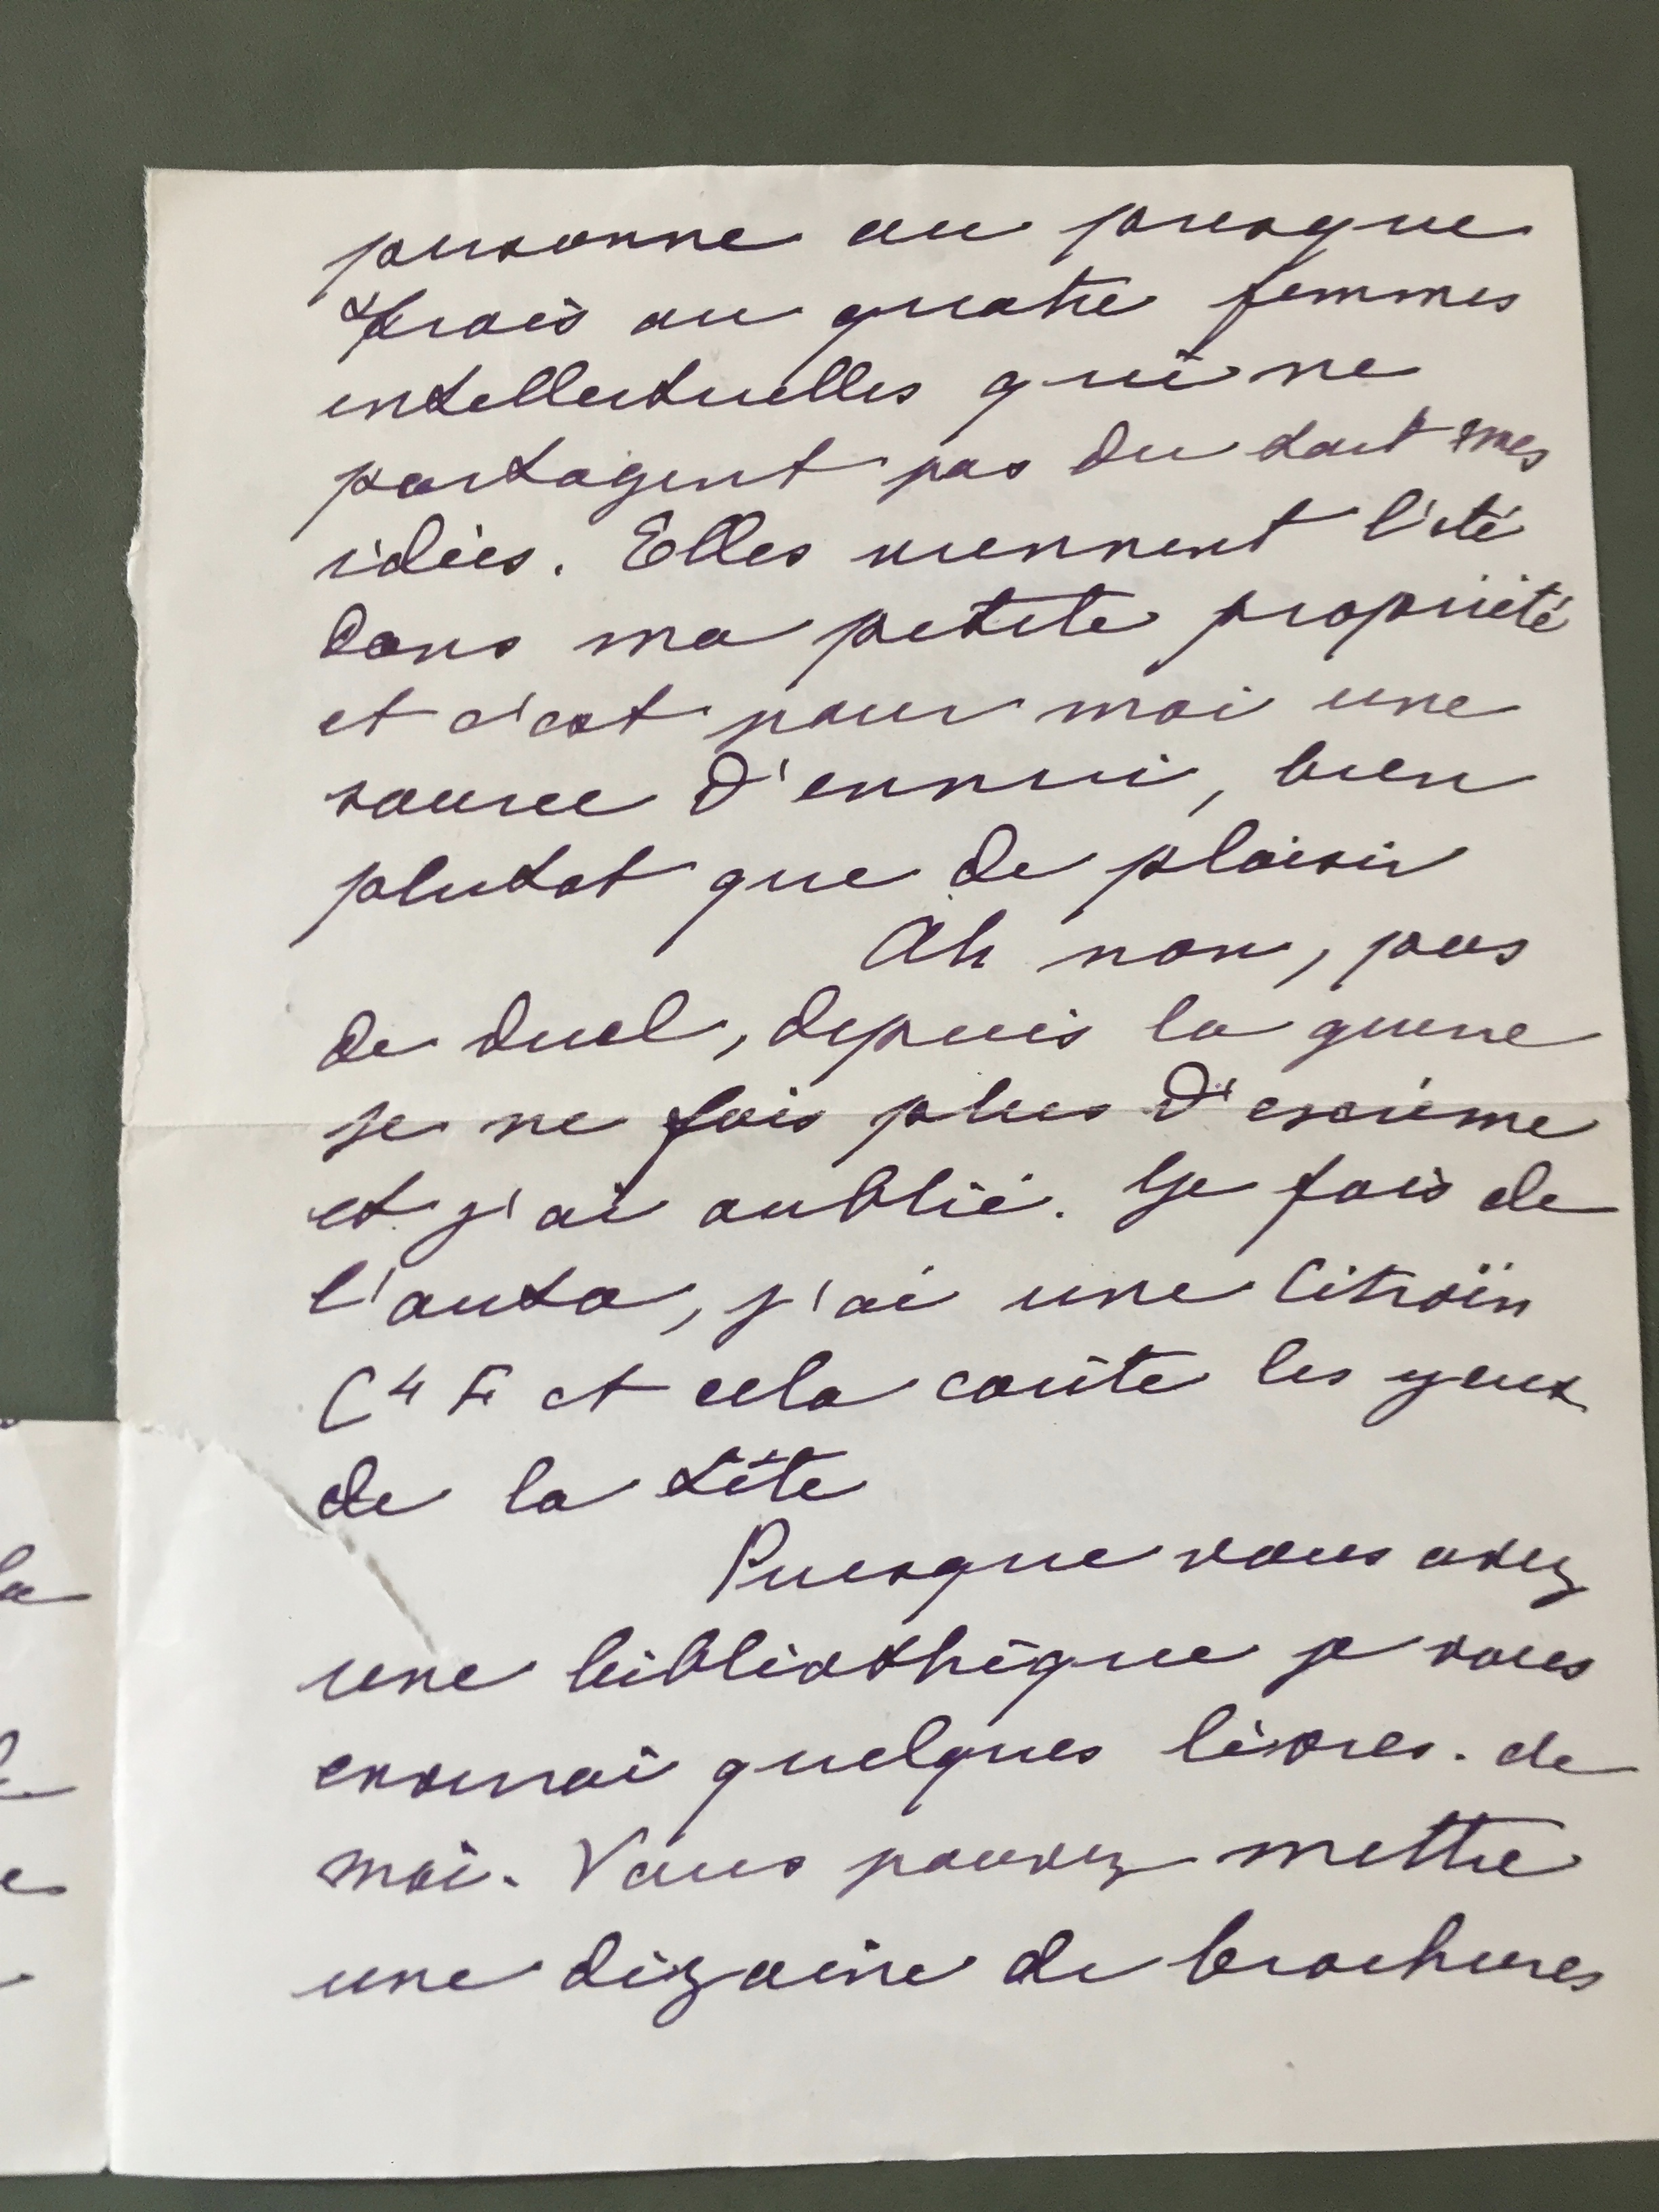 personne ou presque
trois ou quatre femmes
intellectuelles qui ne
partagent pas du tout mes
idées. Elles viennent l'été
dans ma petite propriété
et c'est pour moi une
source d'ennui, bien
plutot que de plaisir
Ah non, pas
de duel, depuis la guerre
je ne fais plus d'escrime
et j'ai oublié. Je fais de
l'auto, j'ai une Citroïn
C4 F et cela coûte les yeux
de la tête
Puisque vous avez
une bibliothèque je vous
enverrai quelques livres. de
moi. Vous pouvez mettre
une dizaine de brochures
la